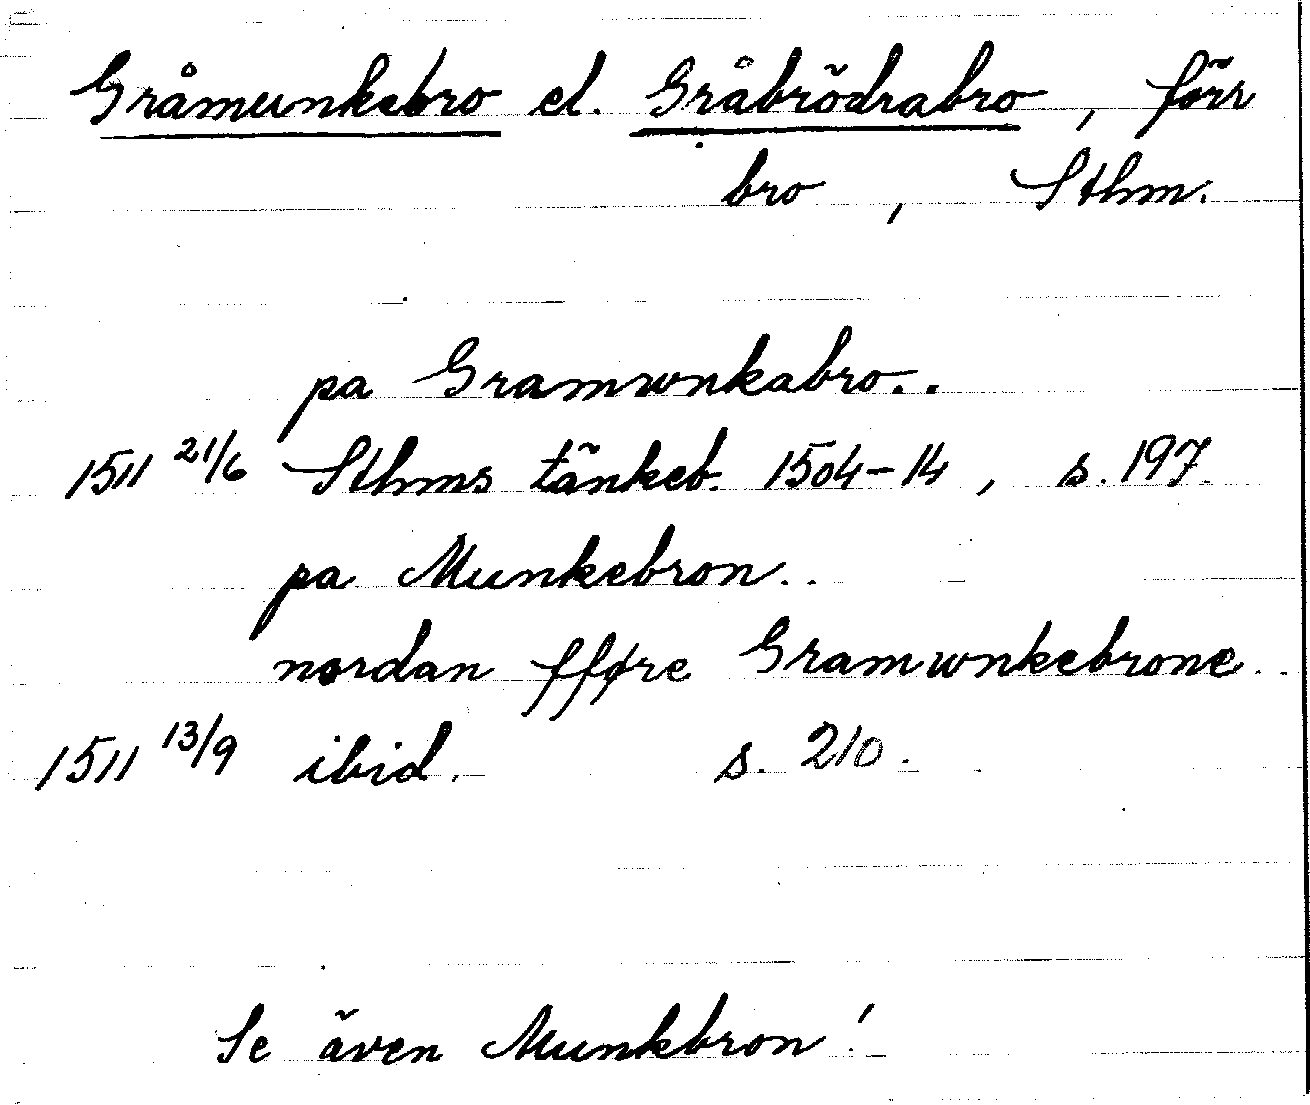 Gråmunkebro el. Gråbrödrabro, förr
bro, Sthm.
pa Gramwnkabro..
1511 21/6 Sthms tänkeb. 1504-14, s. 197.
pa Munkebron..
nordan fføre Gramwnkebrone..
1511 13/9 ibid. s. 210.
Se även Munkbron!